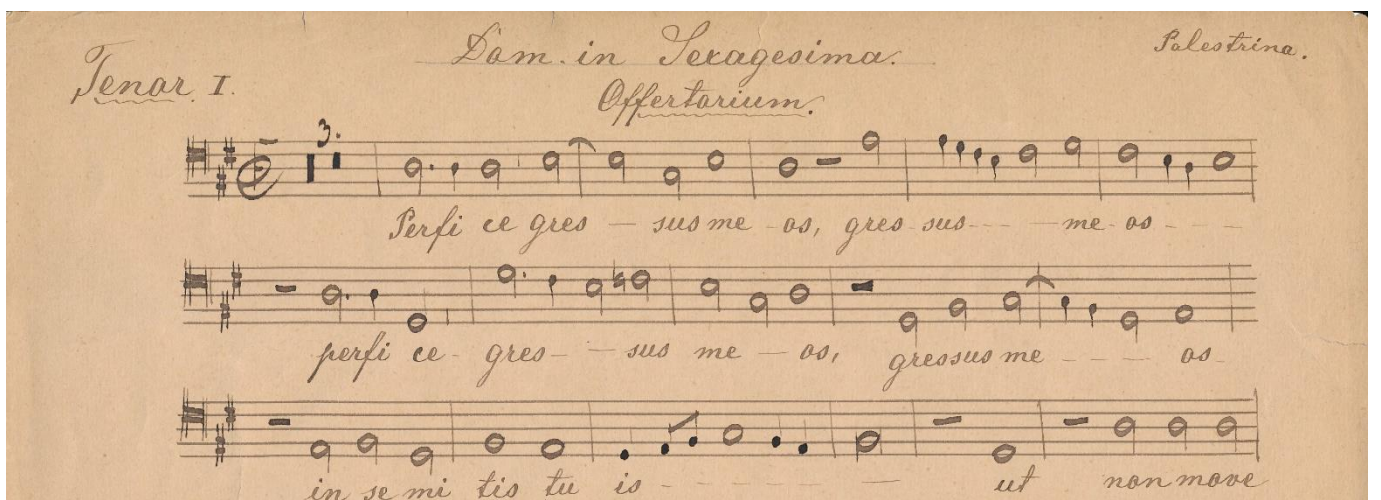 Dom. in Sexagesima.
Palestrina.
Tenor I.
Offertorium.
3.
Perfi ce gres — sus me - os, gres - sus - - - - me - os - - - -
perfi ce - gres - - sus me — os, gressus me - - - - os
in se mi tis tu is - - - - - - - ut non move